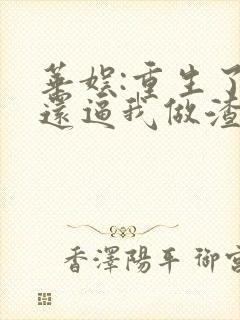 華娛:重生了
還逼我做渣
香澤陽平 御宅